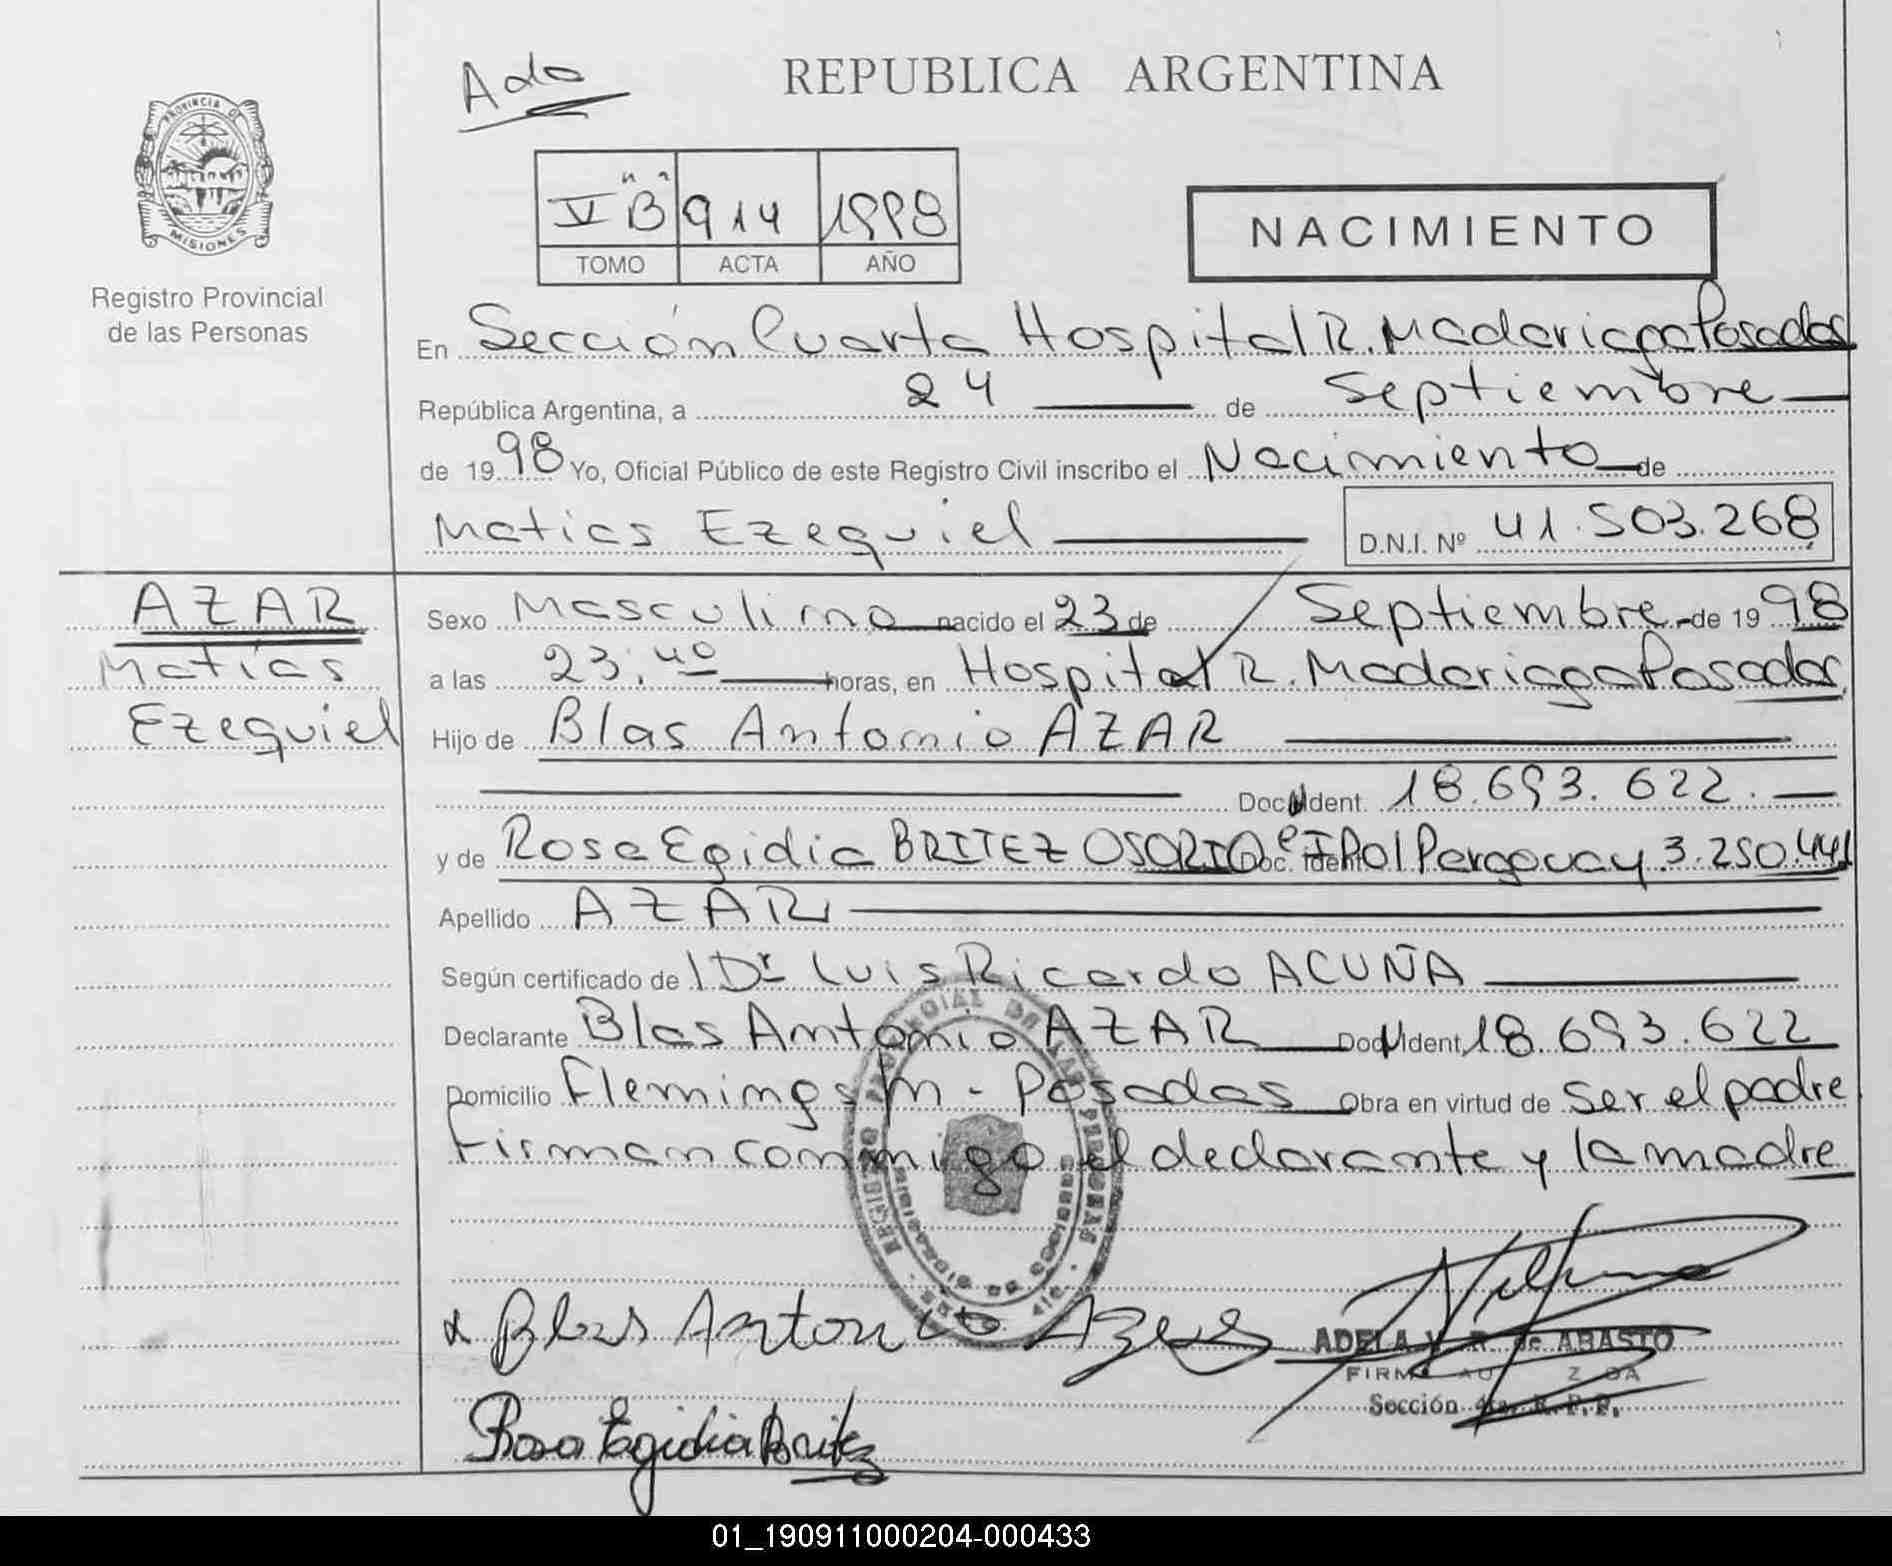 Ada
REPUBLICA ARGENTINA
PROVINCIA DE
MISIONES
Registro Provincial
de las Personas
V "B" 914 1998
TOMO ACTA AÑO
NACIMIENTO
En Sección Cuarta Hospital R. Madariaga Posadas
República Argentina, a 24 de Septiembre
de 1998 Yo, Oficial Público de este Registro Civil inscribo el Nacimiento de
Matias Ezequiel D.N.I. Nº 41.503.268
AZAR
Matías
Ezequiel
Sexo Masculino nacido el 23 de Septiembre de 1998
a las 23:40 horas, en Hospital R. Madariaga Posadas
Hijo de Blas Antonio AZAR
Doc. Ident. 18.693.622.
y de Rosa Egidia BRITEZ OSORIO Doc. Ident. Pol Paraguay 3.250.441
Apellido AZAR
Según certificado de Dr Luis Ricardo ACUÑA
Declarante Blas Antonio AZAR Doc. Ident. 18.693.622
Domicilio Fleming s/n - Posadas Obra en virtud de ser el padre
Firman conmigo el declarante y la madre
REGISTRO PROVINCIAL DE LAS PERSONAS
x Blas Antonio Azar
ADELA V. R. de ABASTO
FIRMA AUTORIZADA
Sección 4ta. R. P. P.
Rosa Egidia Britez
01_190911000204-000433